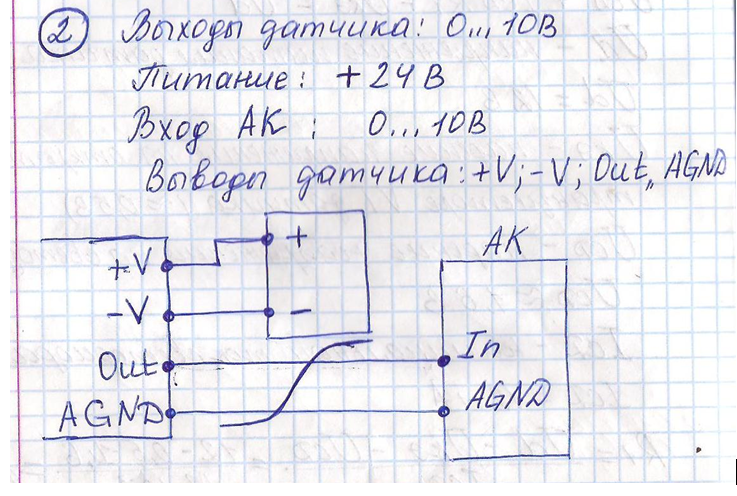 2 Выходы датчика: 0...10В
Питание: +24В
Вход АК: 0...10В
Выводы датчика: +V; -V; Out,, AGND
АК
+
+V
-V
-
In
Out
AGND
AGND